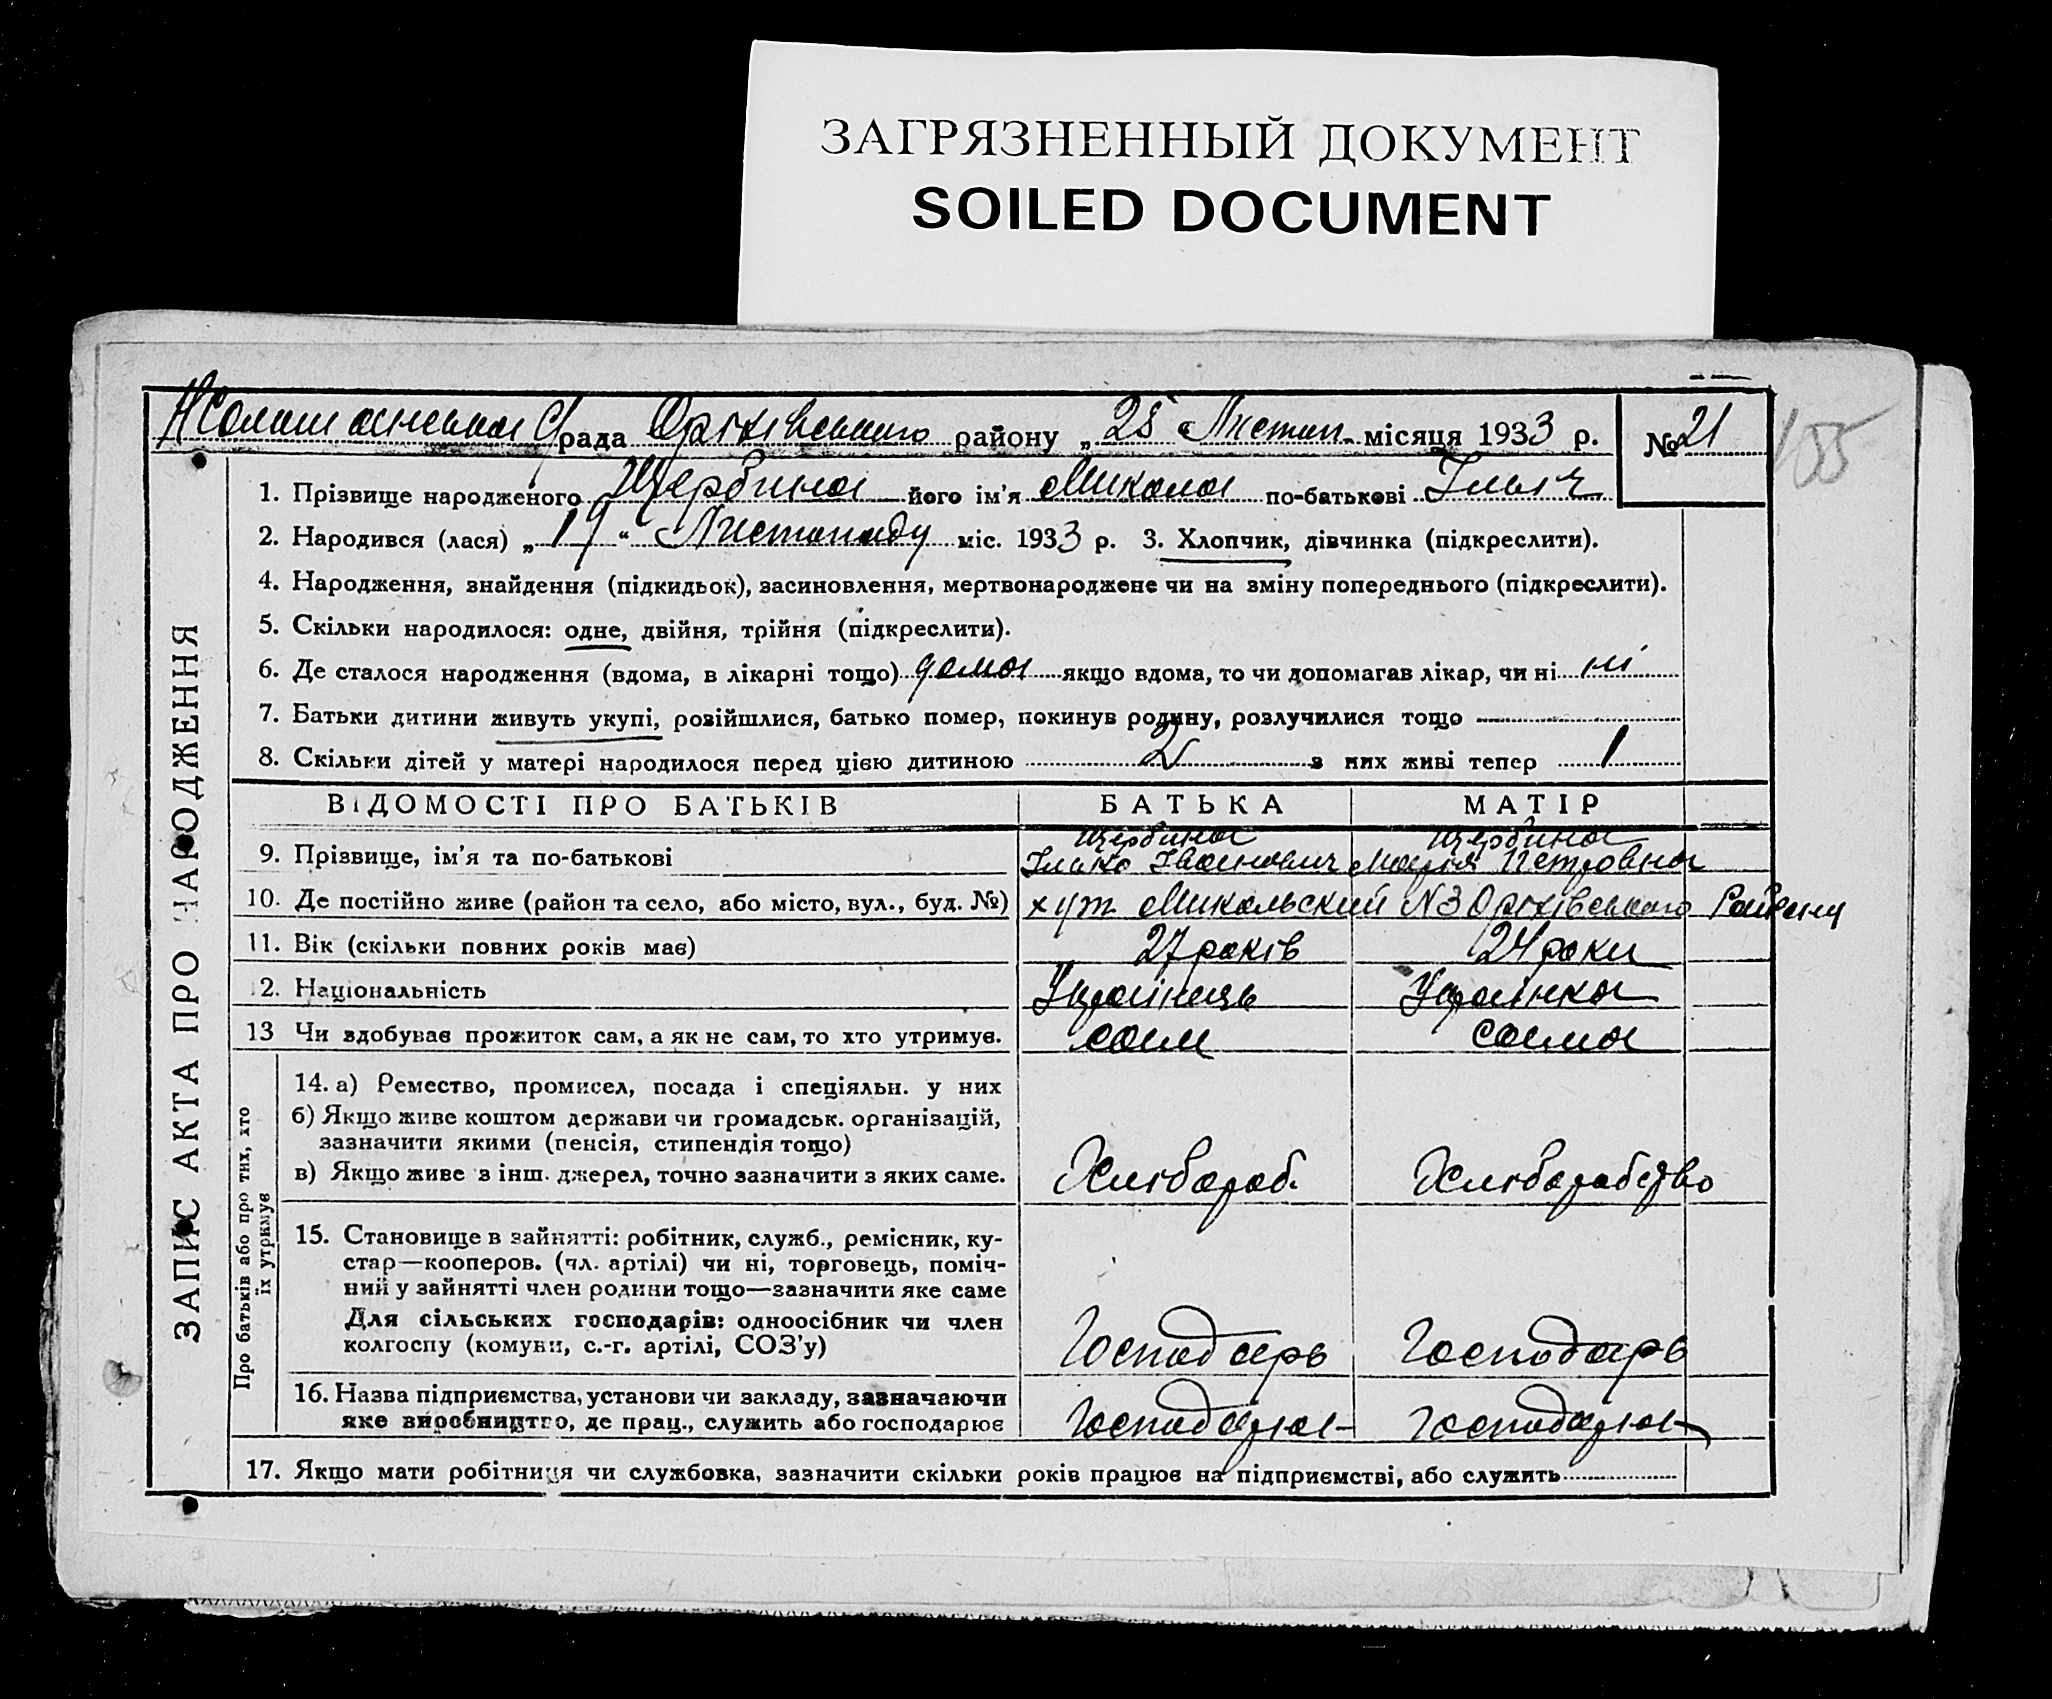 ЗАГРЯЗНЕННЫЙ ДОКУМЕНТ
SOILED DOCUMENT
С/рада Оріхівського району „25“ Листоп. місяця 1933 р. № 21
155
1. Прізвище народженого Щербина його ім'я Микола по-батькові Ільич
2. Народився (лася) „19“ Листопаду міс. 1933 р. 3. Хлопчик, дівчинка (підкреслити).
4. Народження, знайдення (підкидьок), засиновлення, мертвонароджене чи на зміну попереднього (підкреслити).
5. Скільки народилося: одне, двійня, трійня (підкреслити).
6. Де сталося народження (вдома, в лікарні тощо) дома якщо вдома, то чи допомагав лікар, чи ні ні
7. Батьки дитини живуть укупі, розійшлися, батько помер, покинув родину, розлучилися тощо
8. Скільки дітей у матері народилося перед цією дитиною 2 з них живі тепер 1
ЗАПИС АКТА ПРО НАРОДЖЕННЯ
ВІДОМОСТІ ПРО БАТЬКІВ БАТЬКА МАТІР
Щербина Щербина
9. Прізвище, ім'я та по-батькові Ілько Іванович Марія Петровна
10. Де постійно живе (район та село, або місто, вул., буд. №) хут. Микольский N3 Оріхівського Району
11. Вік (скільки повних років має) 27 років 24 роки
12. Національність Українець Українка
13 Чи здобуває прожиток сам, а як не сам, то хто утримує. сам сама
Про батьків або про тих, хто
їх утримує
14. а) Ремество, промисел, посада і спеціяльн. у них
б) Якщо живе коштом держави чи громадськ. організацій,
зазначити якими (пенсія, стипендія тощо)
в) Якщо живе з інш. джерел, точно зазначити з яких саме. Хлібороб. Хліборобство
15. Становище в зайнятті: робітник, служб., ремісник, ку-
стар—кооперов. (чл. артілі) чи ні, торговець, поміч-
ний у зайнятті член родини тощо—зазначити яке саме
Для сільських господарів: одноосібник чи член
колгоспу (комуни, с.-г. артілі, СОЗ'у) Господарь Господарь
16. Назва підприємства, установи чи закладу, зазначаючи
яке виробництво, де прац., служить або господарює
17. Якщо мати робітниця чи службовка, зазначити скільки років працює на підприємстві, або служить